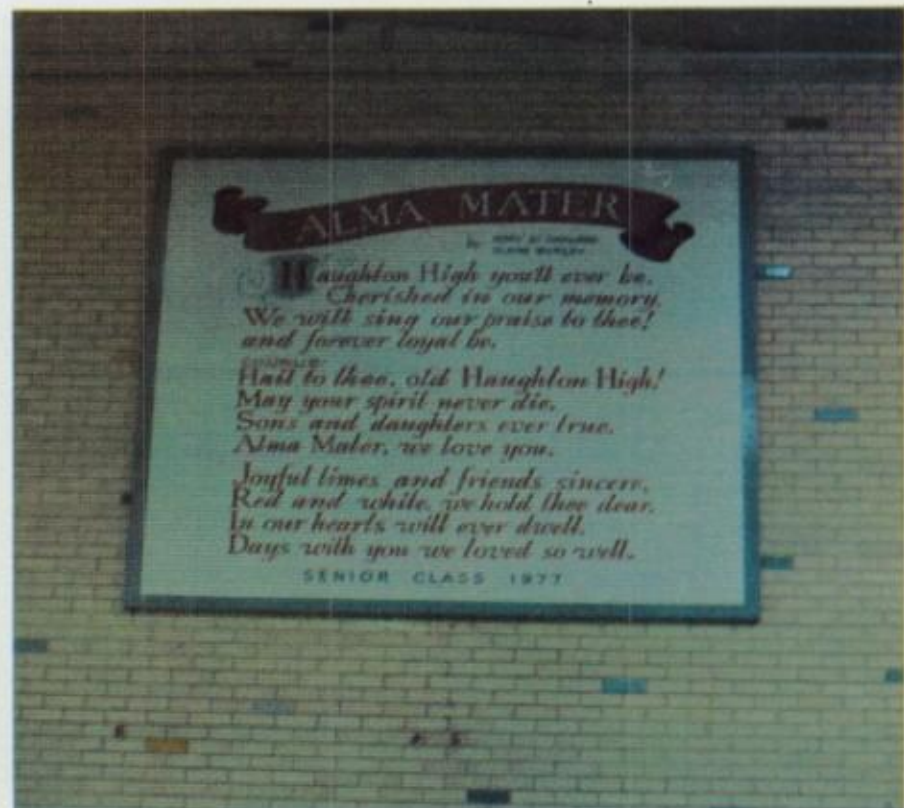 ALMA MATER
by
Haughton High you'll ever be,
Cherished in our memory.
We will sing our praise to thee!
and forever loyal be.
CHORUS:
Hail to thee, old Haughton High!
May your spirit never die,
Sons and daughters ever true,
Alma Mater, we love you.
Joyful times and friends sincere,
Red and white, we hold thee dear.
In our hearts will ever dwell,
Days with you we loved so well.
SENIOR CLASS 1977